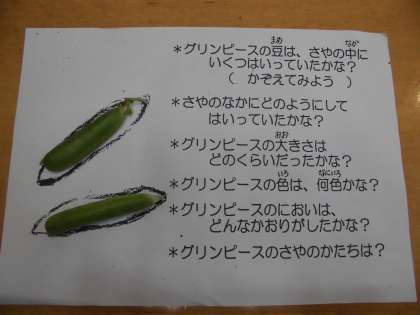 ＊グリンピースの豆は、さやの中に
いくつはいっていたかな？
（　かぞえてみよう　）
＊さやのなかにどのようにして
はいっていたかな？
＊グリンピースの大きさは
どのくらいだったかな？
＊グリンピースの色は、何色かな？
＊グリンピースのにおいは、
どんなかおりがしたかな？
＊グリンピースのさやのかたちは？